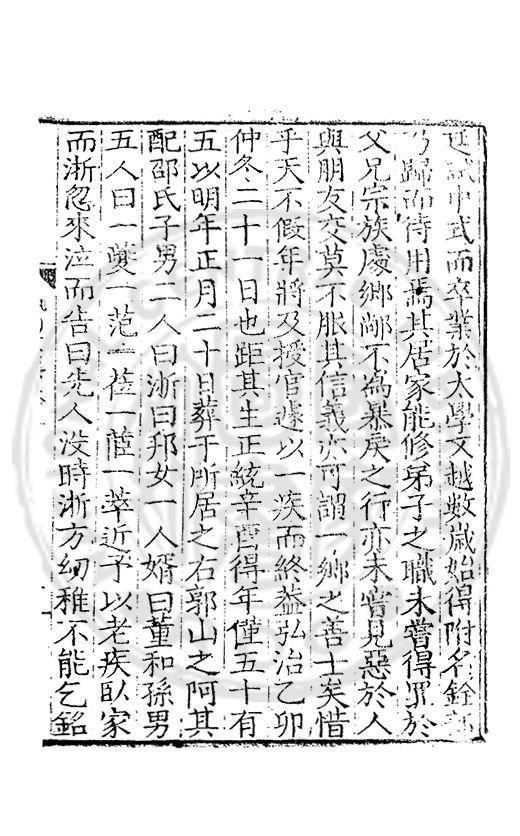 廷試中式而卒業於太學又越數歲始得附名銓部
乃歸而待用焉其居家能修弟子之職未嘗得罪於
父兄宗族處鄉鄰不為暴戾之行亦未嘗見惡於人
與朋友交莫不服其信義亦可謂一鄉之善士矣惜
乎天不假年將及授官遽以一疾而終葢弘治乙卯
仲冬二十一日也距其生正統辛酉得年僅五十有
五以明年正月二十日葬于所居之右郭山之阿其
配邵氏子男二人曰淅曰邦女一人婿曰董和孫男
五人曰一夔一范一蓙一蓙一萃近予以老疾臥家
而淅忽來泣而告曰先人沒時淅方幼稚不能乞銘